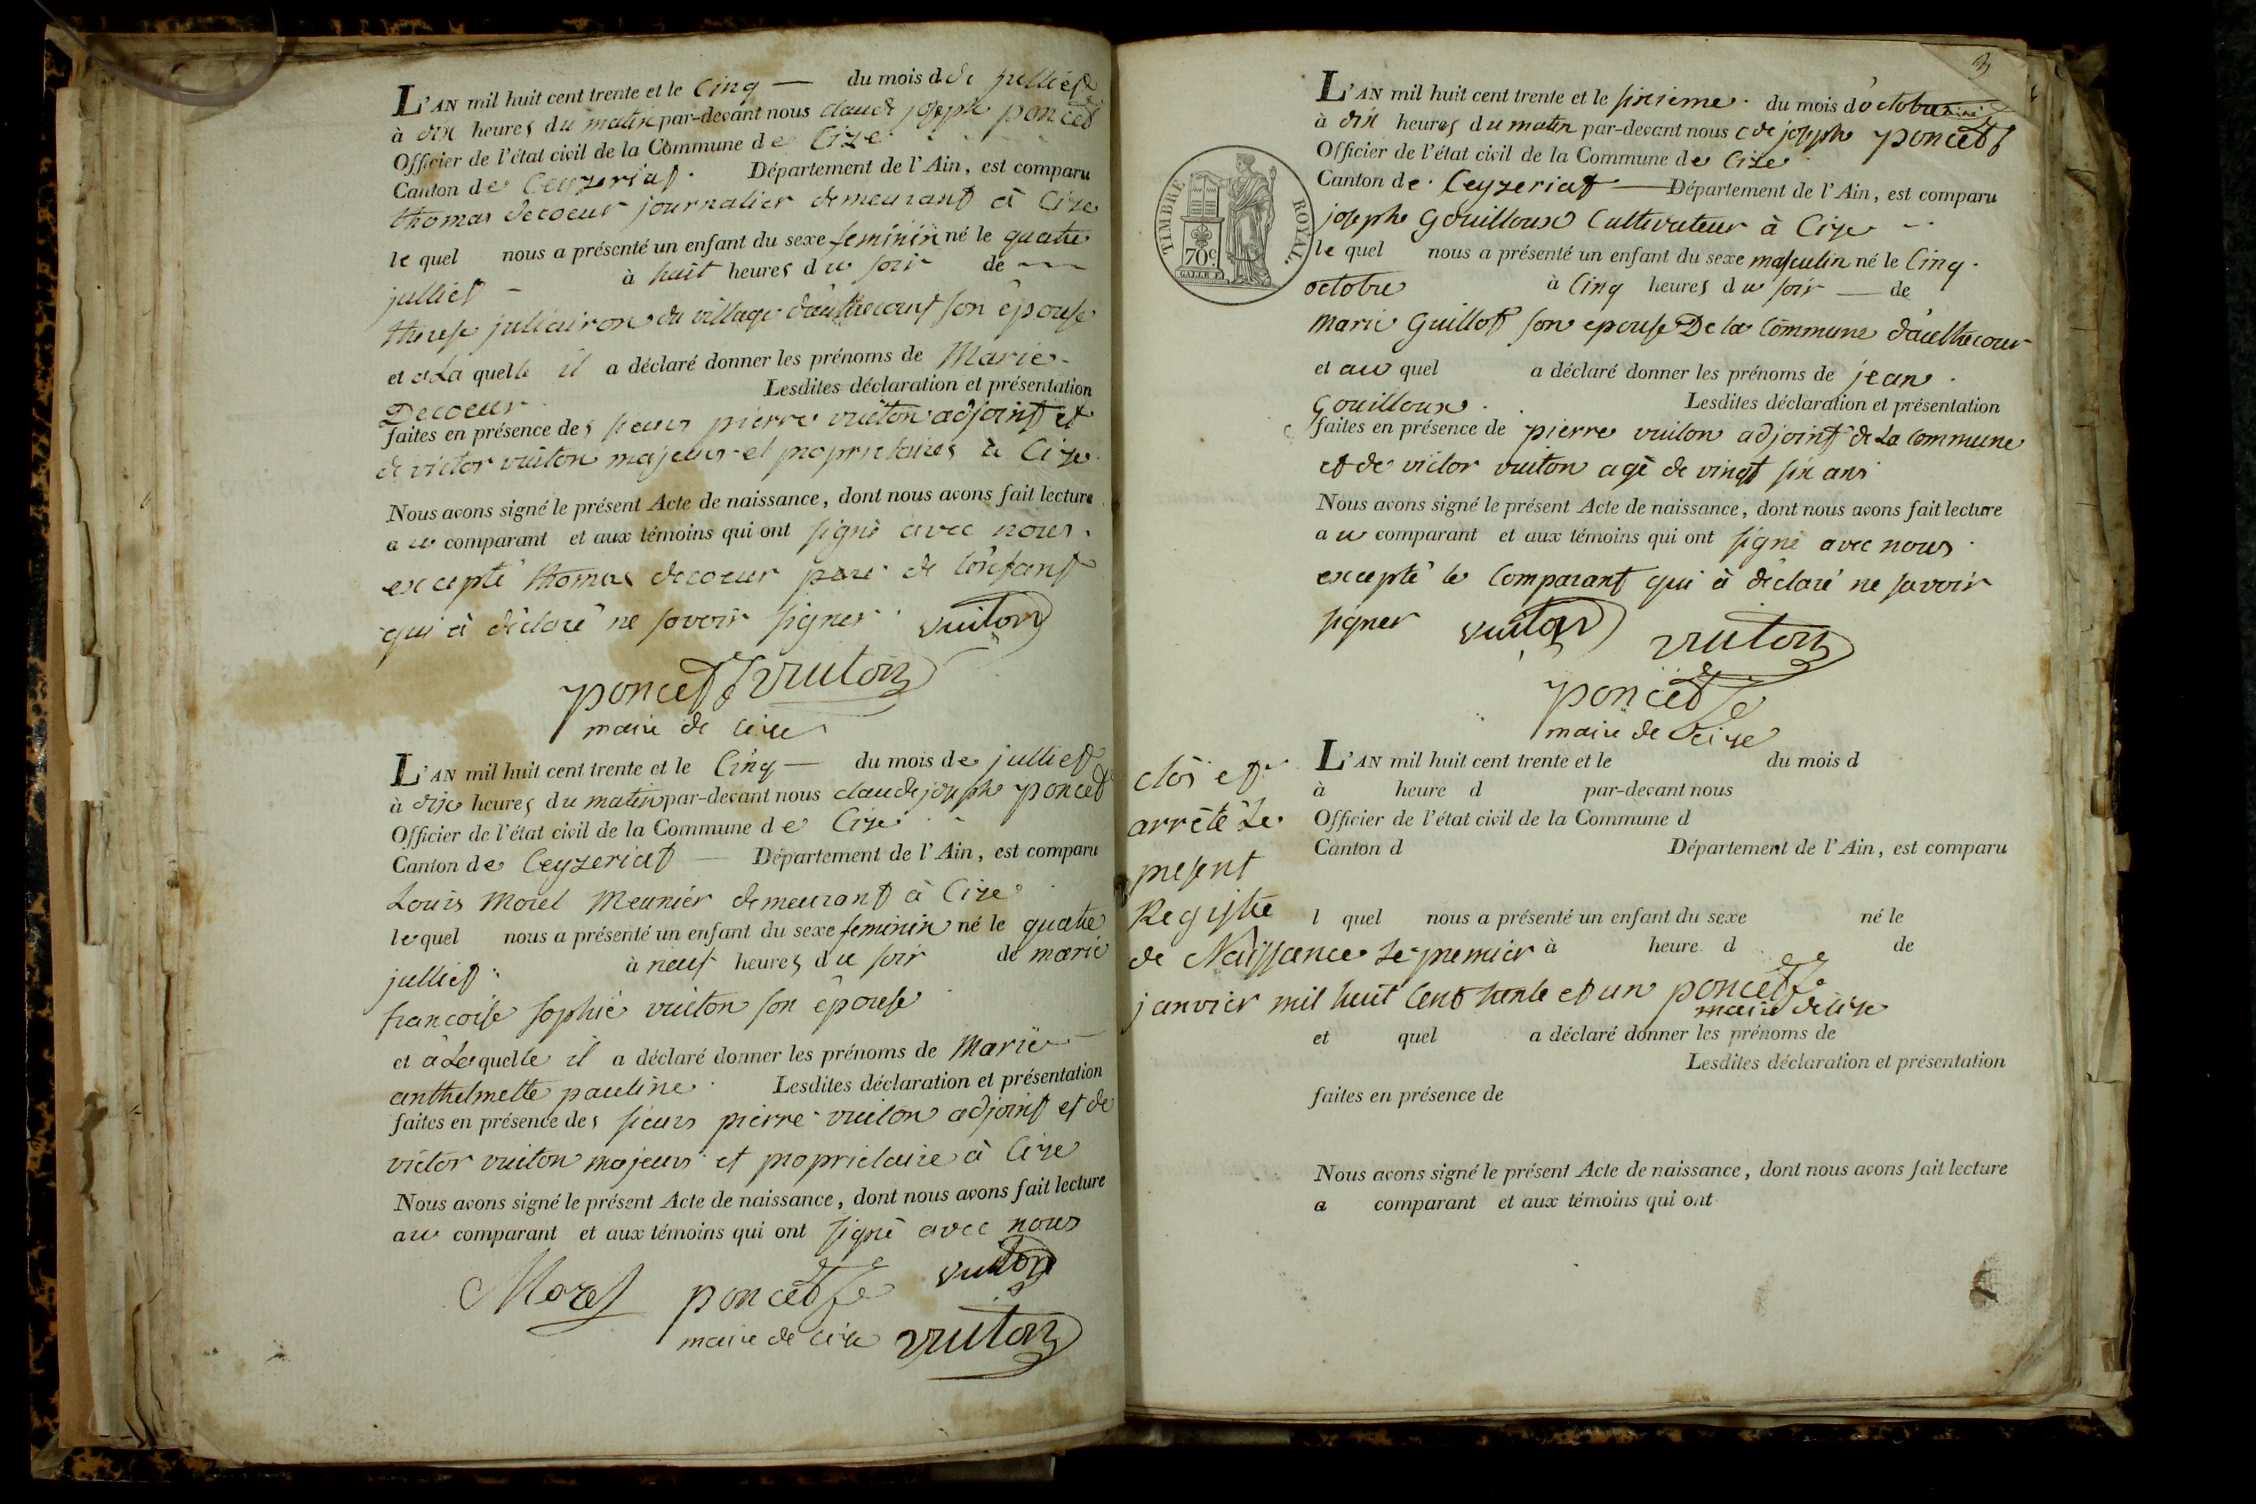 L'AN mil huit cent trente et le Cinq — du mois d de julliet
à dix heures du matin par-devant nous claude joseph poncet
Officier de l'état civil de la Commune de Cize
Canton de Ceyzeriat. Département de l'Ain, est comparu
thomas decoeur journalier demeurant à Cize
le quel nous a présenté un enfant du sexe feminin né le quatre
julliet à huit heures du soir de
therese du village son épouse
et à La quelle il a déclaré donner les prénoms de Marie
Decoeur Lesdites déclaration et présentation
faites en présence des sieurs pierre vuiton adjoint et
de victor vuiton majeurs et proprietaires à Cize
Nous avons signé le présent Acte de naissance, dont nous avons fait lecture
au comparant et aux témoins qui ont signé avec nous.
excepté thomas decoeur pere de l'enfant
qui à déclaré ne savoir signer. vuiton
poncet vuiton
maire de cize
L'AN mil huit cent trente et le Cinq — du mois de julliet
à dix heures du matin par-devant nous claude joseph poncet
Officier de l'état civil de la Commune de Cize
Canton de Ceyzeriat — Département de l'Ain, est comparu
Louis Morel Meunier demeurant à Cize
le quel nous a présenté un enfant du sexe feminin né le quatre
julliet à neuf heures du soir de marie
francoise sophie vuiton son épouse
et à La quelle il a déclaré donner les prénoms de Marie
anthelmette pauline Lesdites déclaration et présentation
faites en présence des sieurs pierre vuiton adjoint et de
victor vuiton majeurs et proprietaire à Cize
Nous avons signé le présent Acte de naissance, dont nous avons fait lecture
au comparant et aux témoins qui ont signé avec nous
Morel poncet vuiton
maire de cize vuiton
3
L'AN mil huit cent trente et le sixieme du mois d'octobre
à dix heures du matin par-devant nous cde joseph poncet
Officier de l'état civil de la Commune de Cize
Canton de Ceyzeriat — Département de l'Ain, est comparu
TIMBRE ROYAL.
70c
joseph Gouilloux Cultivateur à Cize
le quel nous a présenté un enfant du sexe masculin né le Cinq
octobre à Cinq heures du soir — de
marie Guillot son epouse De la Commune
et au quel a déclaré donner les prénoms de jean
Gouilloux. Lesdites déclaration et présentation
faites en présence de pierre vuiton adjoint de La commune
et de victor vuiton agé de vingt six ans
Nous avons signé le présent Acte de naissance, dont nous avons fait lecture
au comparant et aux témoins qui ont signé avec nous
excepté le Comparant qui à déclaré ne savoir
signer vuiton vuiton
poncet
maire de cize
L'AN mil huit cent trente et le du mois d
à heure d par-devant nous
Officier de l'état civil de la Commune d
Canton d Département de l'Ain, est comparu
l quel nous a présenté un enfant du sexe né le
à heure d de
clos et
arrêté Le
present
Registre
de Naissance Le premier
janvier mil huit Cent trente et un poncet
maire de cize
et quel a déclaré donner les prénoms de
Lesdites déclaration et présentation
faites en présence de
Nous avons signé le présent Acte de naissance, dont nous avons fait lecture
a comparant et aux témoins qui ont